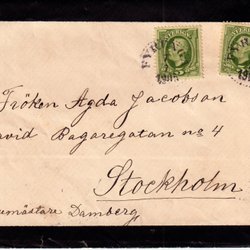 SVERIGE
Fröken Agda Jacobson
avid Bagaregatan no 4
Stockholm
umästare Damberg